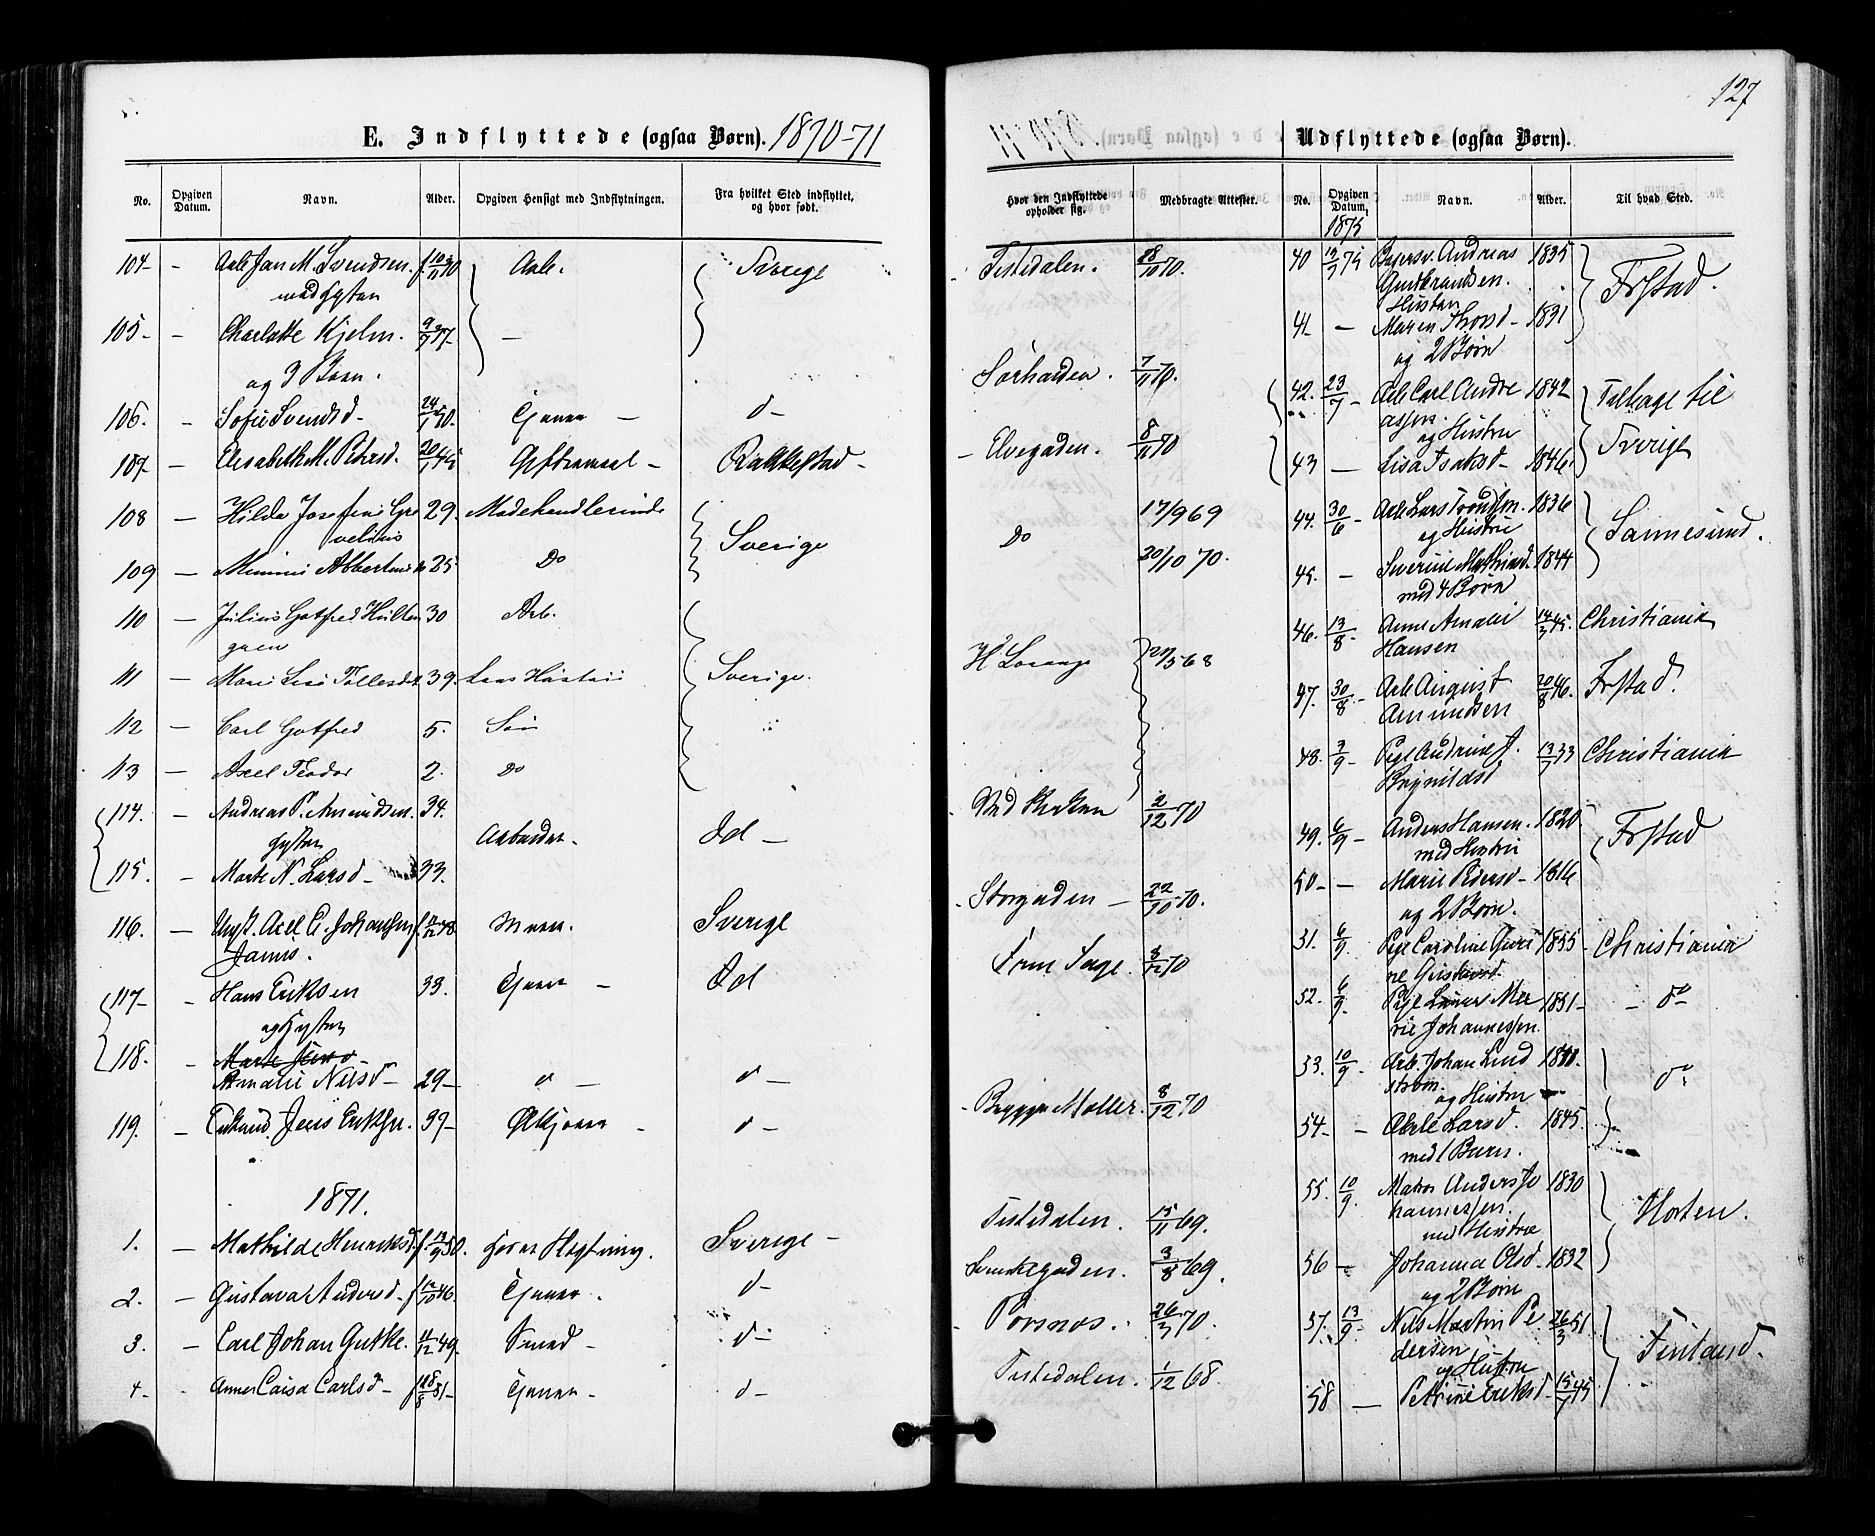 127
E. Indflyttede (ogsaa Børn). 1870-71
No. Opgiven Datum. Navn. Alder. Opgiven Hensigt med Indflytningen. Fra hvilket Sted indflyttet, og hvor født.
104 - Arb. Jan M. Svendsen. f 10/11 30 Arb. Sverige
med Hustru
105 - Charlotte Hjelm. -
og 3 Børn.
106. - Sofie Svendsd - Tjener - d -
107 - Elisabeth M. Petersd. Giftermaal - Rakkestad -
108 - Hilda Josefine Gre 29. Modehandlerinde
velius Sverige
109 - Minni Abbertine 25 Do
110 - Julius Gotfred Hulten 30 Arb.
gren
111 - Mari Lisi Tollesdt 39. Hans Hustru Sverige.
112 - Carl Gotfred 5. Søn
113 - Axel Teodor 2. Do
114. - Andreas P. Amundsen. 34.
Hustru Arbeider. Id -
115. - Marte N. Larsd - 33.
116. - Ungk. Axel C. Johansen f. 48. Murer. Sverige
117 - Hans Eriksen 33. Tjener - Id
og Hustru
118.
Amalie Nilsd - 29 - d - d -
119. - Enkemand Jens Eriksen. 39 - - d -
1871.
1. - Mathilde Henriksd. f. 13/9 50. Sverige -
2. - Gustava Andersd - f 12/10 46. Tjener - d -
3. - Carl Johan Gutke. 11/12 49. Smed - d -
4 - - Anna Caisa Carlsd - f Tjener - d -
Udflyttede (ogsaa Børn).
Hvor den Indflyttede opholder sig. Medbragte Attester. No. Opgiven Datum, Navn. Alder. Til hvad Sted.
1875
Tistedalen. 28/10 70. 40 Andreas 1835
Gudbrandsen. Frstad.
Hustru
41 - Maren Thorsd - 1831
og 2 Børn
Sørhalden. 7/11 70.
42. 23/7 - Arb. Carl Andre 1842 Tilbage til
assen.
og Hustru
- Elvegaden. 8/11 70 Sverige
43 - Lisa Isaksd - 1846.
Do 17/9 69 44. 30/6 - Arb. Lars Trondsen 1836
og Hustru Sannesund.
20/10 70. 45. - Severine Mathisd. 1844
med 4 Børn
46. 13/8 - Anne Amalie 14/3 45. Christiania
Hansen
H Lorange 21/5 68
47. 30/8 - Arb. August 20/8 46. Frstad.
Amundsen
48. 3/9 - Pige Andrine J. 13/7 33 Christiania
Brynildsd
Ved Kirken 2/12 70
49. 6/9 - Anders Hansen. 1820 Frstad
med Hustru
50 - - Marie Pedersd - 1816
og 2 Børn.
- Storgaden - 22/10 70.
51. 6/9 Pige Caroline Guri 1855 - Christiania
ne Gustavsd
- Frem Sage. 3/12 70
52. 6/9 Pige Ma 1851 - - do
rie Johannessen.
53. 10/9 - Arb. Johan Lind
strøm. do
og Hustru
- Brygge Møller. 8/12 70
54 - - Larsd. 1845.
med 1 Barn.
55. 10/9 Matros Anders Jo 1830
hannessen. Horten.
med Hustru
Tistedalen. 15/11 69.
56 - Johanne Olsd - 1832
og 2 Børn
Svenskegaden. 3/8 69.
Porsnes. 26/3 70.
57. 13/9. Nils Martin Pe 26/3 51.
dersen Finland.
og Hustru
Tistedalen. 1/12 68.
58 - Petrine Eriksd - 15/7 45